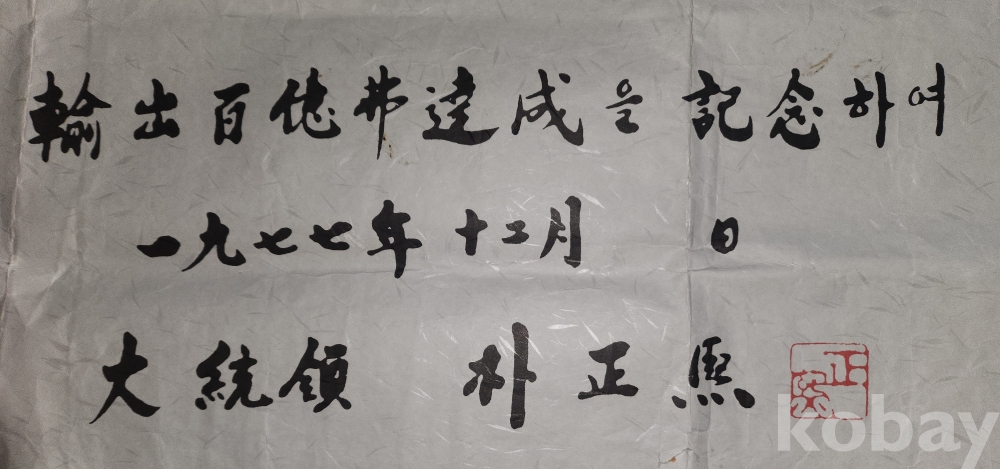 輸出百億弗達成을 記念하여
一九七七年 十二月 日
大統領 朴正熙
正熙
kobay